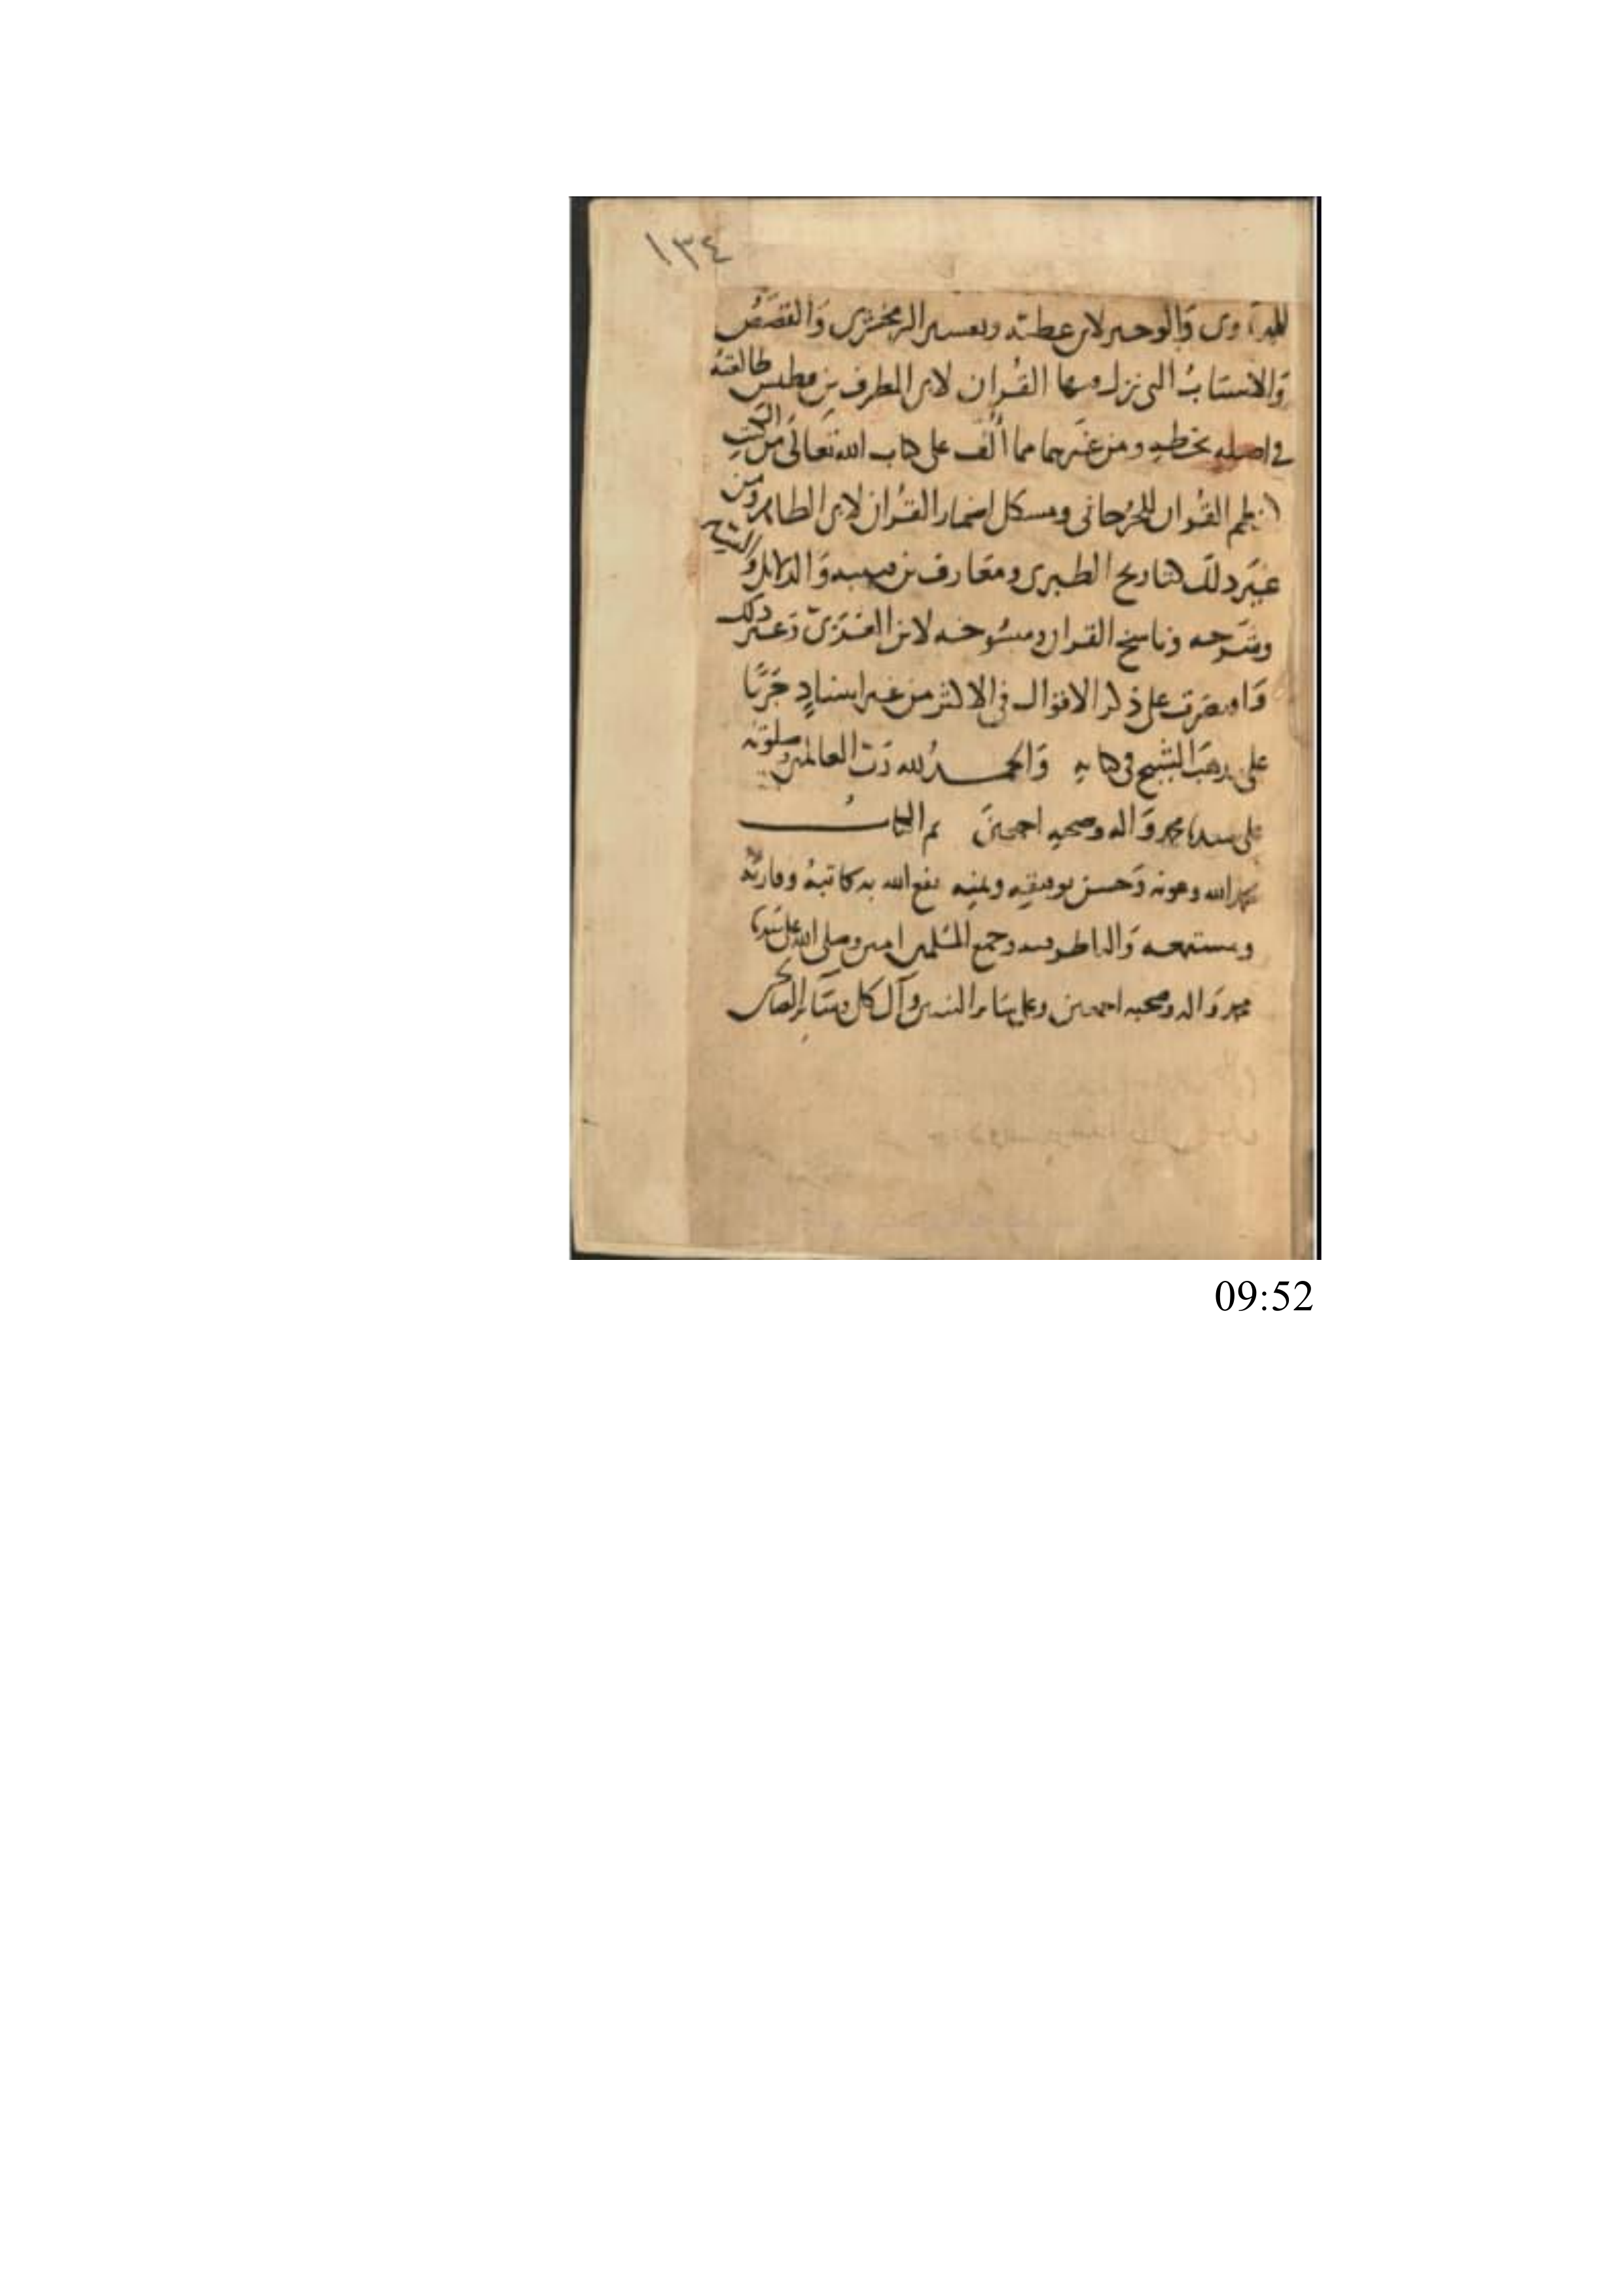 ١٣٤
للمهدوى وَالوجيز لابن عطية وتفسير الزمخشرى وَالقصَصُ
وَالاسبَابُ التى نزل فيها القُرآن لابى المطرف بن فطيس طالعتهُ
في اصله بخطه ومن غيرهما مما أُلّف على كتاب الله تعَالى من الكتب
نظم القُرآن للجُرجانى ومشكل اضمار القُرآن لابى الطاهر ومن
غير ذلك كتاريخ الطبرى ومعَارف بن قتيبه وَالدلائل
وشرحه وناسخ القرآن ومنسُوخه لابن العَرَبىّ وَغير ذلك
وَاقتصَرت على ذكر الاقوال فى الاكثر من غير اسنادٍ جَريًا
على مذهَب الشيخ فى كتابهِ وَالحمدُ لله رَبّ العالمين وصلوته
على سيدنا محمد وَاله وصحبهِ اجمعينَ تم الكتابُ
بحمد الله وعونه وَحسن توفيقه ويمنِه نفع الله به كاتبهُ وقارئه
ومستمعه وَالناظر فيه وجميع المسُلمين امين وصلى الله على سَيدنا
محمد وَاله وصحبه اجمعين وعلى سَائر النبيين وآل كل وسَائر الصالحين
09:52